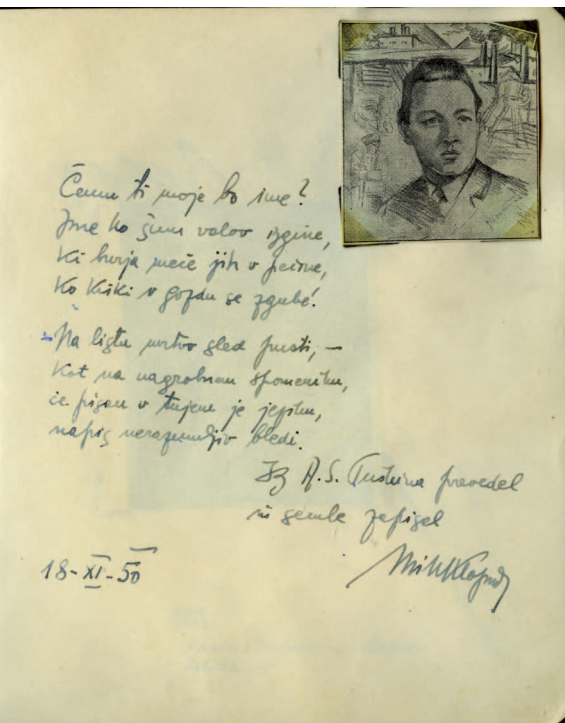 Čemu ti moje bo ime?
Ime ko šum valov izgine,
ki burja meče jih v pečine,
ko kriki v gozdu se zgubé.
Na listu mrtvo sled pusti, –
kot na nagrobnem spomeniku,
če pisan v tujem je jeziku,
napis nerazumljiv bledi.
Iz A.S. Puškina prevedel
in semle zapisal
Mile Klopčič
18-XI-50